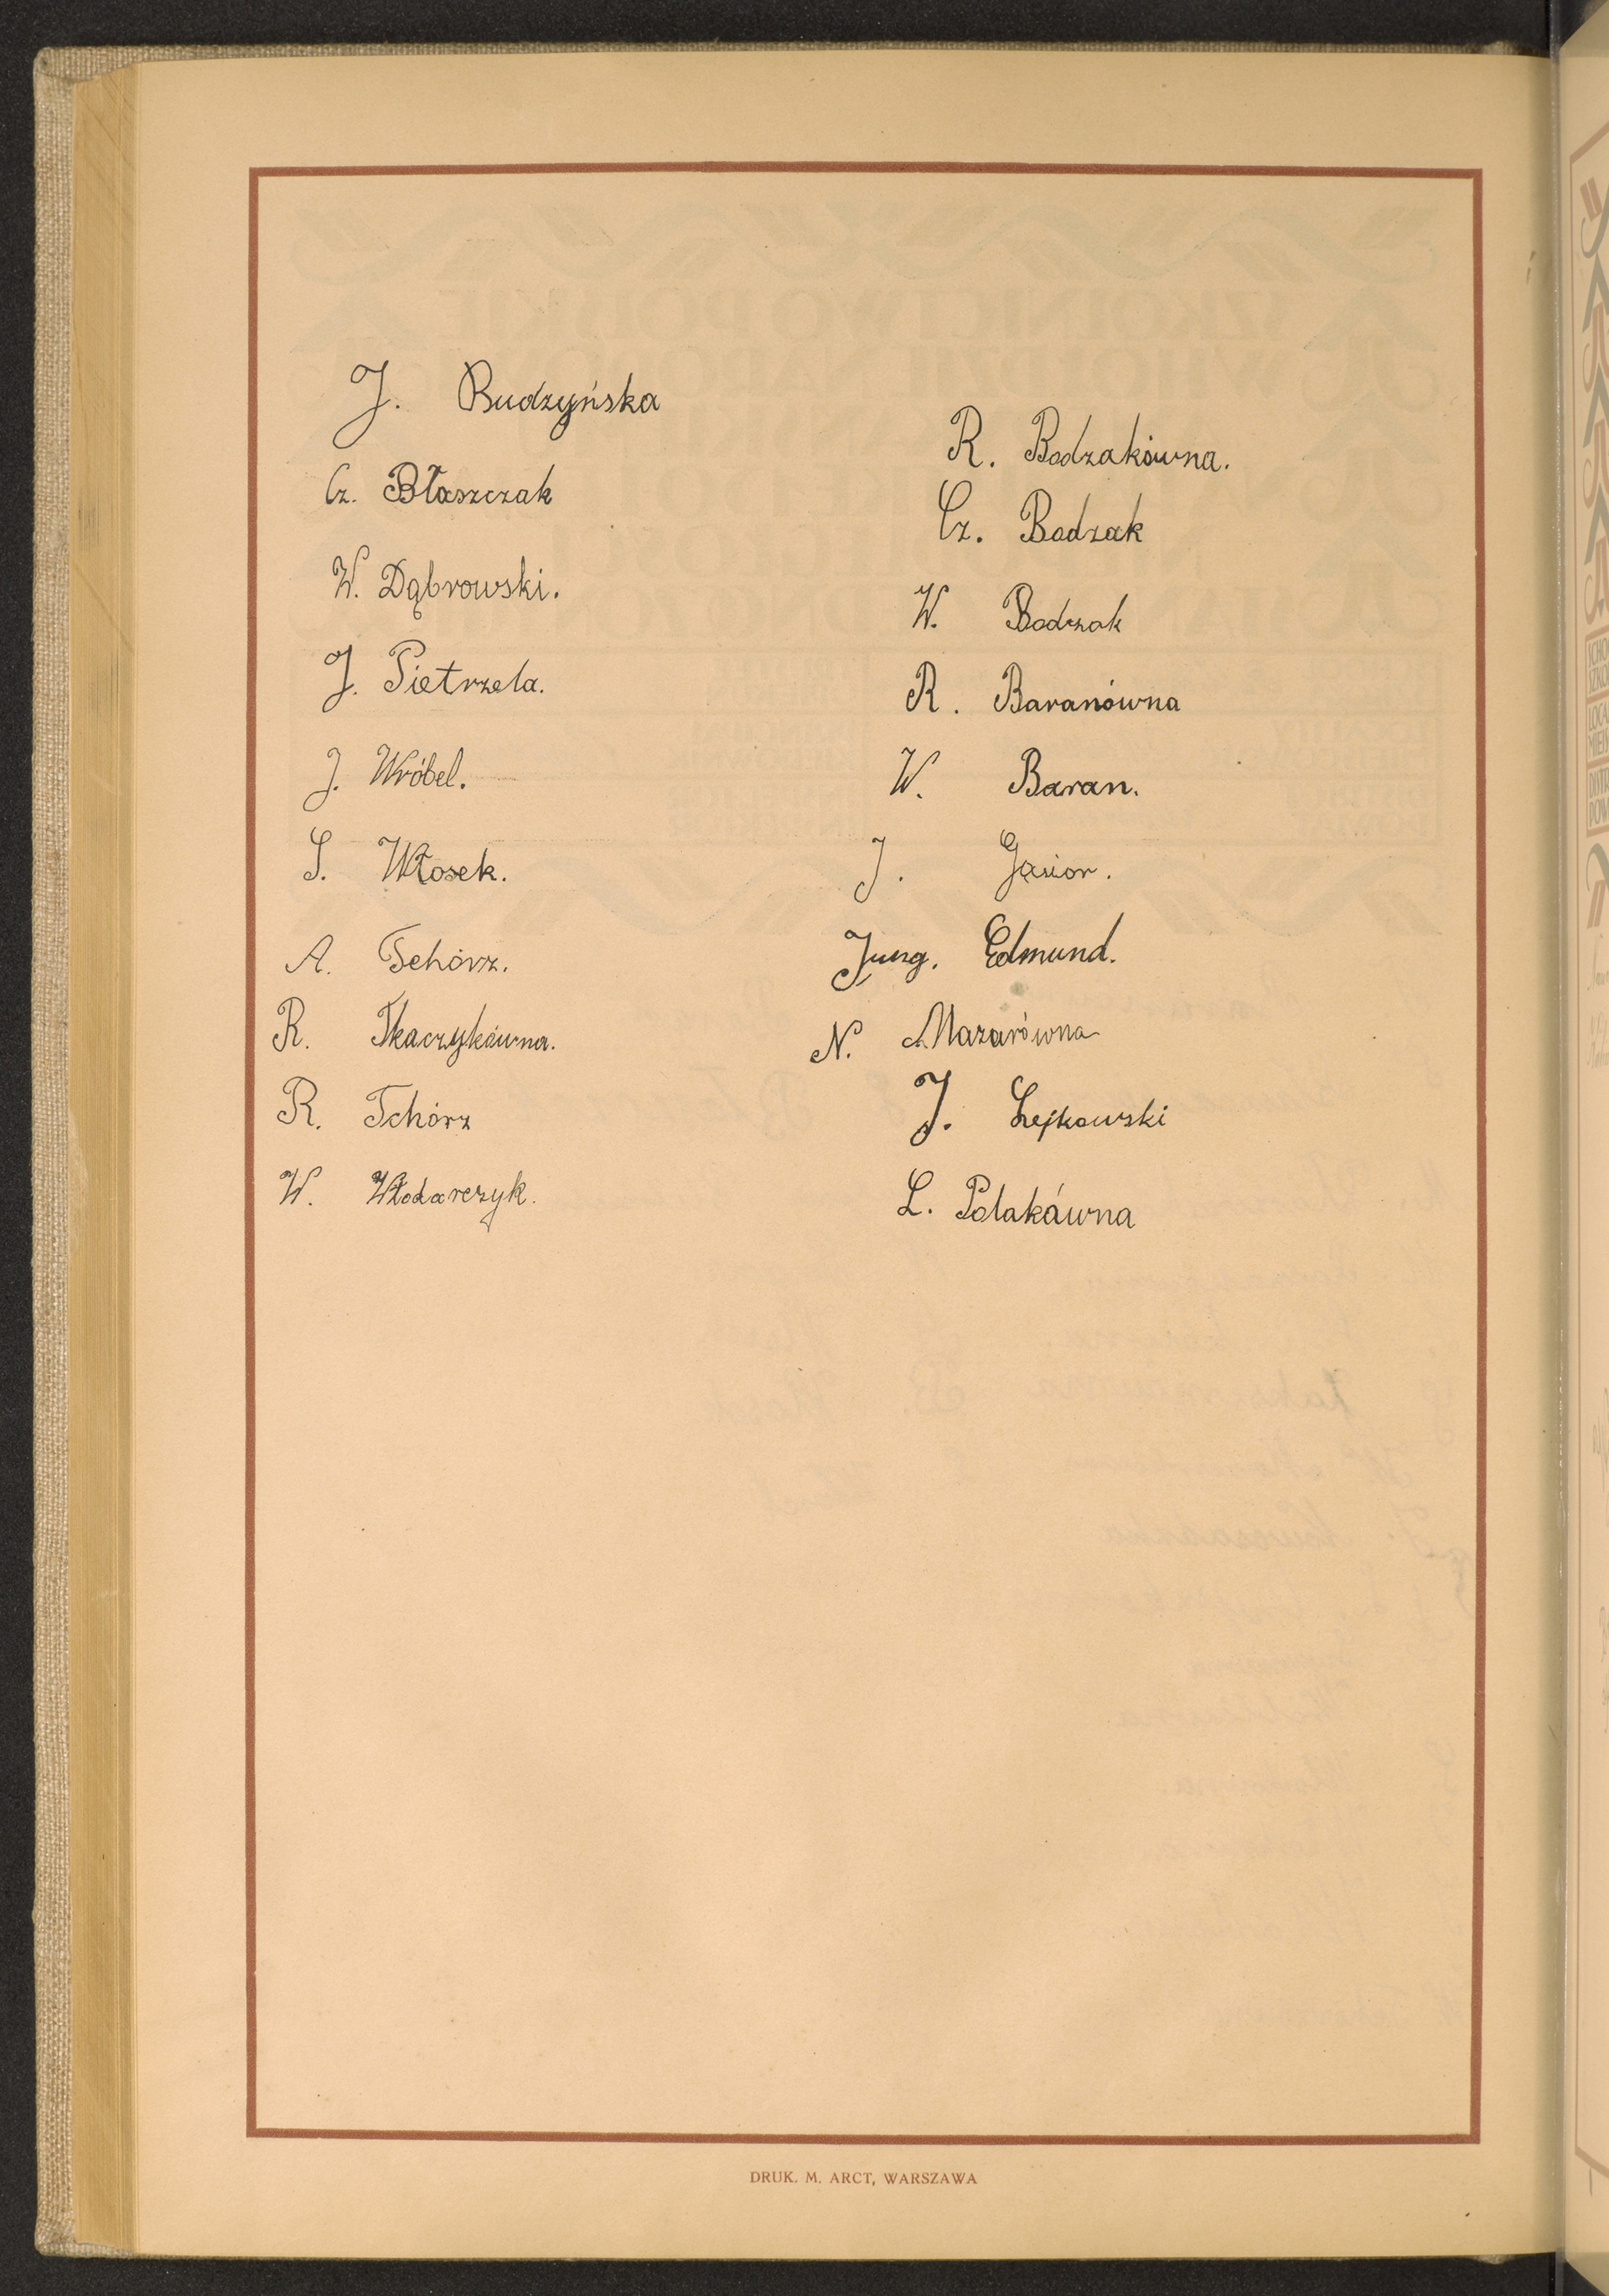 J. Budzyńska
Cz. Błaszczak
W. Dąbrowski.
J. Pietrzela.
J. Wróbel.
S. Włosek.
A. Tchórz.
R. Tkaczykówna.
R. Tchórz
W. Włodarczyk.
R. Bodzakówna.
Cz. Bodzak
W. Bodzak
R. Baranówna
W. Baran.
J. Gąsior.
Jung. Edmund.
N. Mazurówna
J. Lejkowski
L. Polakówna
DRUK. M. ARCT, WARSZAWA